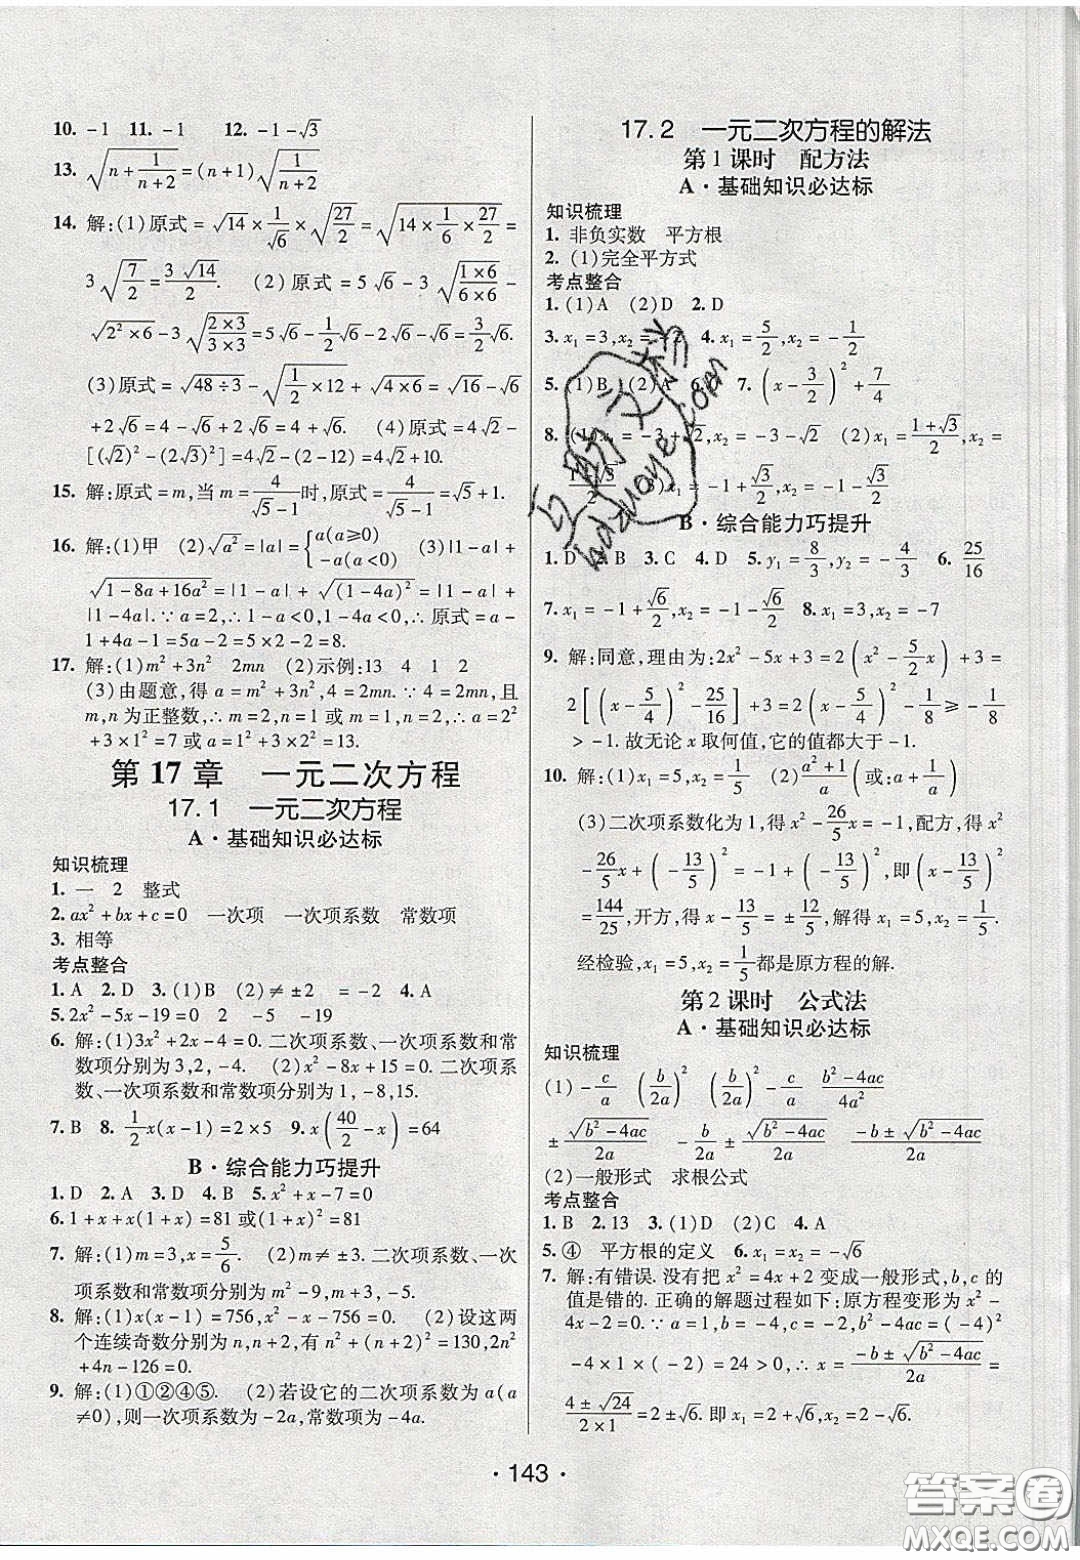 10. -1  11. -1  12. -1-√3
13. √(n+1/(n+2))=(n+1)√(1/(n+2))
14. 解:(1)原式=√14×1/√6×√(27/2)=√(14×1/6×27/2)=
3√(7/2)=3√14/2.  (2)原式=5√6-3√((1×6)/(6×6))-
√(2²×6)-3√((2×3)/(3×3))=5√6-1/2√6-2√6-√6=3/2√6.
(3)原式=√(48÷3)-√(1/2×12)+√(4×6)=√16-√6
+2√6=4-√6+2√6=4+√6.  (4)原式=4√2-
[(√2)²-(2√3)²]=4√2-(2-12)=4√2+10.
15. 解:原式=m,当m=4/(√5-1)时,原式=4/(√5-1)=√5+1.
16. 解:(1)甲  (2)√a²=|a|={a(a≥0) -a(a<0)  (3)|1-a|+
√(1-8a+16a²)=|1-a|+√(1-4a)²=|1-a|+
|1-4a|.∵a=2,∴1-a<0,1-4a<0,∴原式=a-
1+4a-1=5a-2=5×2-2=8.
17. 解:(1)m²+3n²  2mn  (2)示例:13  4  1  2
(3)由题意,得a=m²+3n²,4=2mn.∵4=2mn,且
m,n为正整数,∴m=2,n=1或m=1,n=2.∴a=2²
+3×1²=7或a=1²+3×2²=13.
第17章  一元二次方程
17.1  一元二次方程
A·基础知识必达标
知识梳理
1. 一  2  整式
2. ax²+bx+c=0  一次项  一次项系数  常数项
3. 相等
考点整合
1. A  2. D  3. (1)B  (2)≠±2  =-2  4. A
5. 2x²-5x-19=0  2  -5  -19
6. 解:(1)3x²+2x-4=0.二次项系数、一次项系数和常
数项分别为3,2,-4.  (2)x²-8x+15=0.二次项系
数、一次项系数和常数项分别为1,-8,15.
7. B  8. 1/2x(x-1)=2×5  9. x(40/2-x)=64
B·综合能力巧提升
1. D  2. A  3. B  4. B  5. x²+x-7=0
6. 1+x+x(1+x)=81或(1+x)²=81
7. 解:(1)m=3,x=5/6.  (2)m≠±3.二次项系数、一次
项系数和常数项分别为m²-9,m+3,-5.
8. 解:(1)x(x-1)=756,x²-x-756=0.  (2)设这两
个连续奇数分别为n,n+2,有n²+(n+2)²=130,2n²
+4n-126=0.
9. 解:(1)①②④⑤.  (2)若设它的二次项系数为a(a
≠0),则一次项系数为-2a,常数项为-4a.
17.2  一元二次方程的解法
第1课时  配方法
A·基础知识必达标
知识梳理
1. 非负实数  平方根
2. (1)完全平方式
考点整合
1. (1)A  (2)D  2. D
3. x₁=3,x₂=  4. x₁=5/2,x₂=-1/2
5. (1)B  (2)A  6.  7. (x-3/2)²+7/4
8. (1)x₁=-3+√2,x₂=-3-√2  (2)x₁=(1+√3)/2,x₂=
(3)x₁=-1+√3/2,x₂=-1-√3/2
B·综合能力巧提升
1. D  2. B  3. C  4. D  5. y₁=8/3,y₂=-4/3  6. 25/16
7. x₁=-1+√6/2,x₂=-1-√6/2  8. x₁=3,x₂=-7
9. 解:同意,理由为:2x²-5x+3=2(x²-5/2x)+3=
2[(x-5/4)²-25/16]+3=2(x-5/4)²-1/8≥-1/8
>-1.故无论x取何值,它的值都大于-1.
10. 解:(1)x₁=5,x₂=1/5  (2)(a²+1)/a(或:a+1/a)
(3)二次项系数化为1,得x²-26/5x=-1,配方,得x²
-26/5x+(-13/5)²=-1+(-13/5)²,即(x-13/5)²
=144/25,开方,得x-13/5=±12/5,解得x₁=5,x₂=1/5.
经检验,x₁=5,x₂=1/5都是原方程的解.
第2课时  公式法
A·基础知识必达标
知识梳理
(1)-c/a  (b/2a)²  (b/2a)²  (b²-4ac)/4a²
±√(b²-4ac)/2a  -b/2a±√(b²-4ac)/2a  (-b±√(b²-4ac))/2a
(2)一般形式  求根公式
考点整合
1. B  2. 13  3. (1)D  (2)C  4. A
5. ④  平方根的定义  6. x₁=x₂=-√6
7. 解:有错误.没有把x²=4x+2变成一般形式,b,c的
值是错的.正确的解题过程如下:原方程变形为x²-
4x-2=0.∵a=1,b=-4,c=-2,b²-4ac=(-4)²
-4×1×(-2)=24>0,∴x=(-b±√(b²-4ac))/2a=
(4±√24)/(2×1)=2±√6.即x₁=2+√6,x₂=2-√6.
·143·
答案圈
MXQE.COM